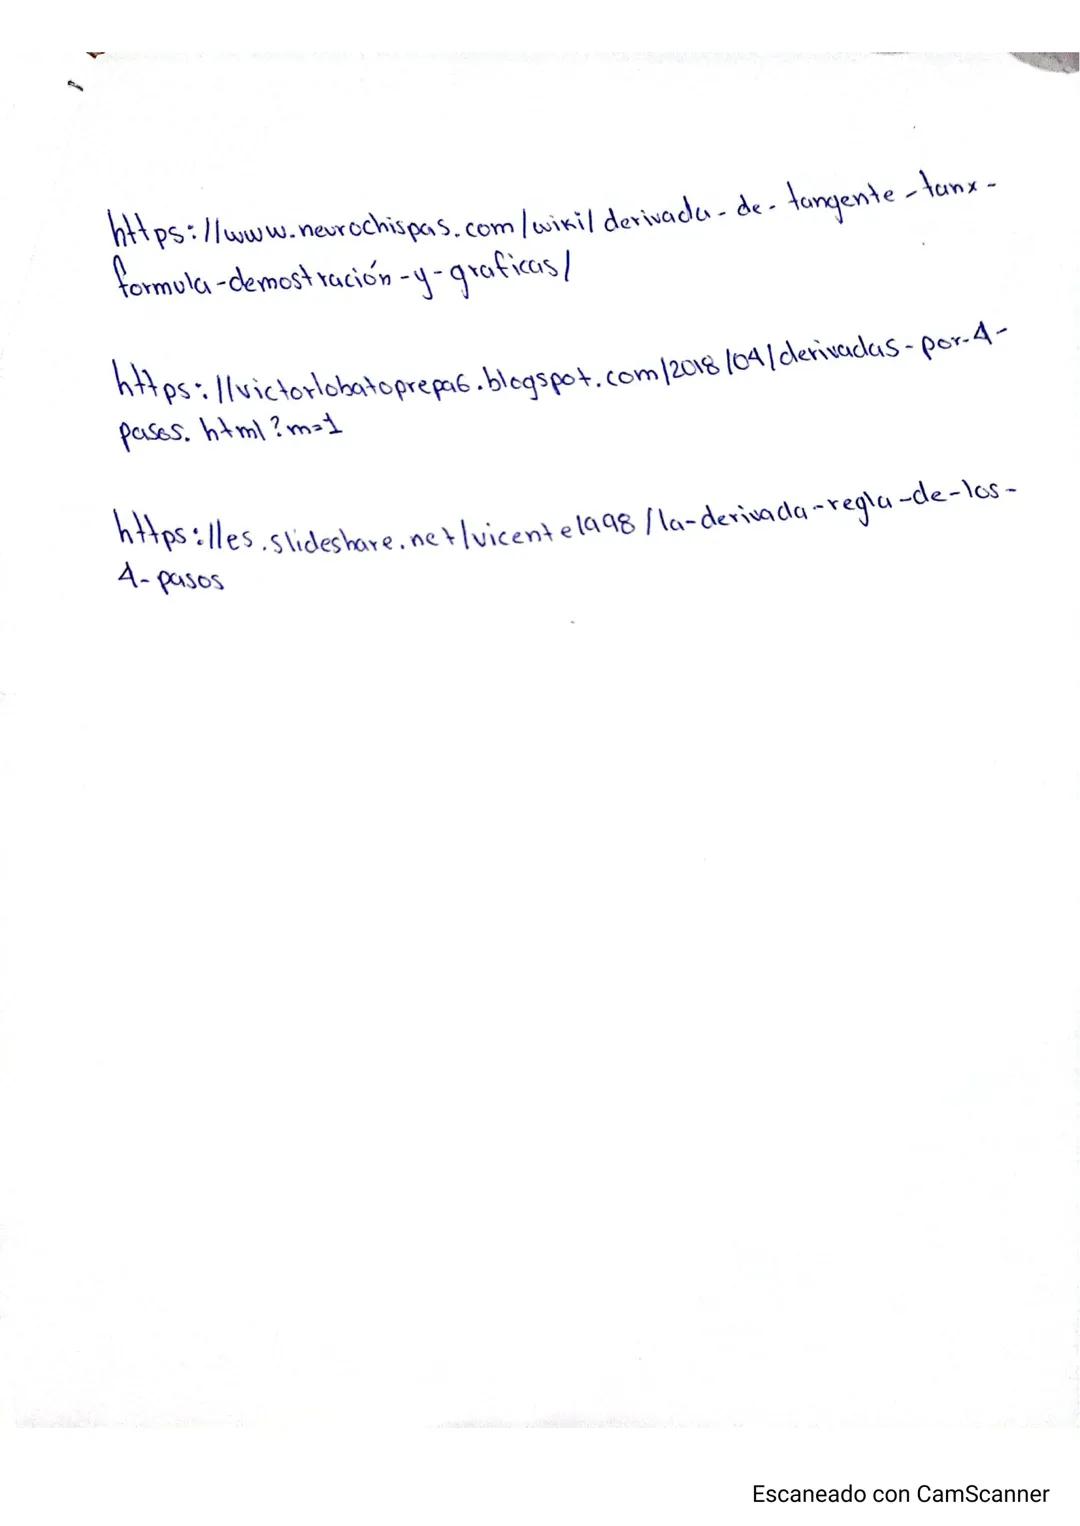 https://www.neurochispas.com/wiki/derivada-de-tangente-tanx-
formula-demostración-y-graficas/
https://victorlobatoprepa6.blogspot.com/2018/04/derivadas-por-4-
pasos.html?m=1
https://es.slideshare.net/vicente1998/la-derivada-regla-de-los-
4-pasos
Escaneado con CamScanner